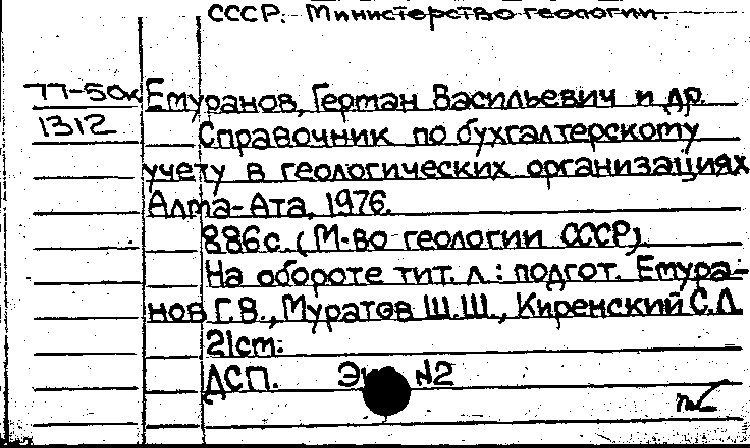 СССР. Министерство геологии.
77-50к Емуранов, Герман Васильевич и др.
1312 Справочник по бухгалтерскому
учету в геологических организациях
Алма-Ата, 1976.
886с. (М-во геологии СССР)
На обороте тит. л.: подгот. Емура-
нов Г.В., Муратов Ш.Ш., Киренский С.Л.
21см.
ДСП. №2